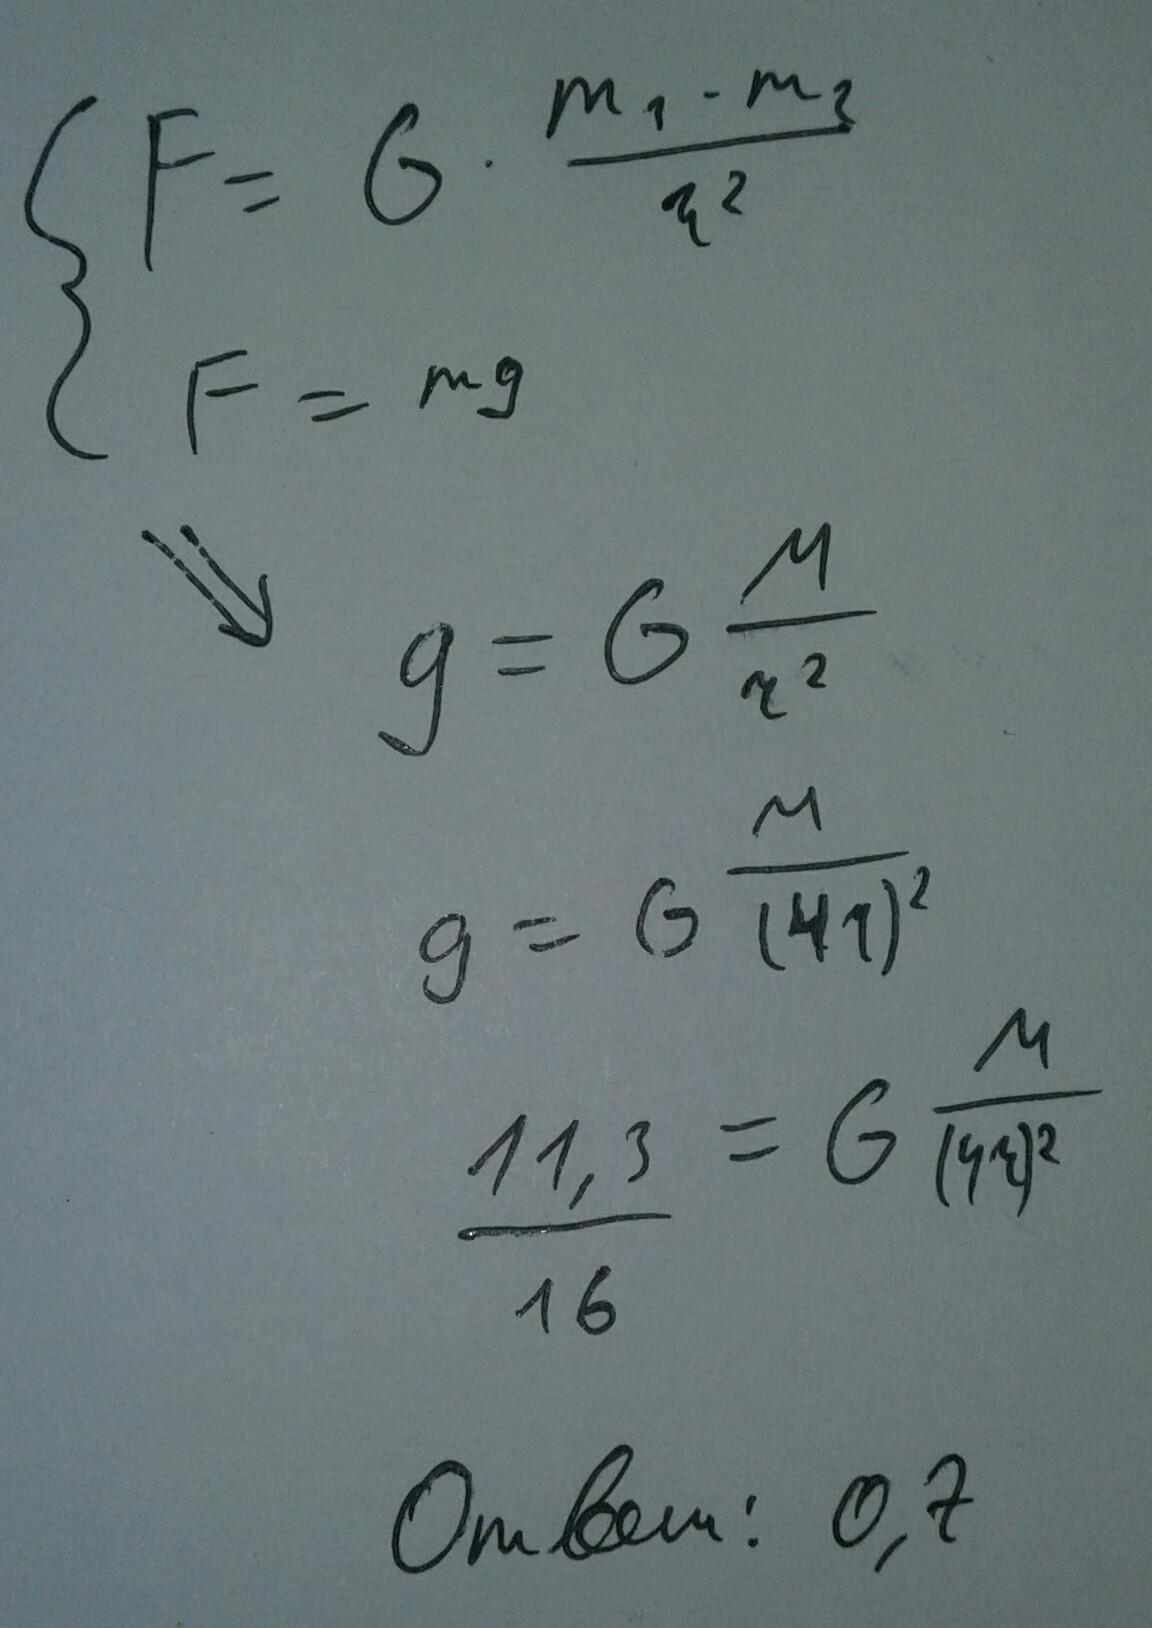 F = G · m₁ · m₂ / r²
F = mg
⇒ g = G M / r²
g = G M / (4r)²
11,3 / 16 = G M / (4r)²
Ответ: 0,7